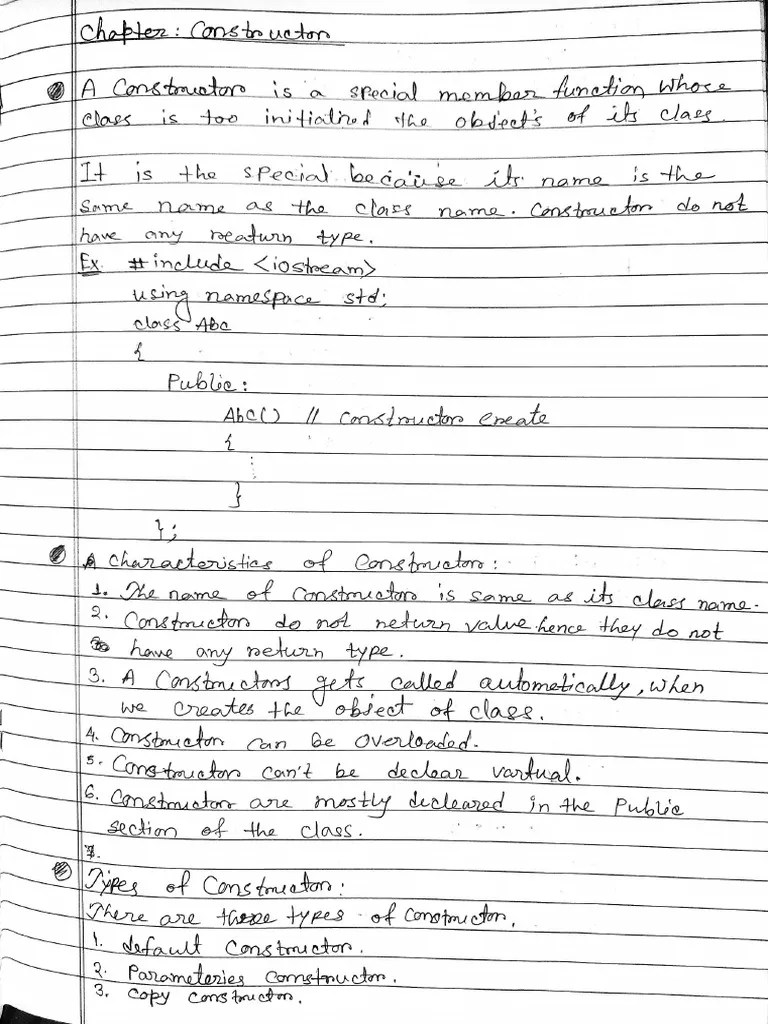 Chapter: Constructor
A Constructor is a special member function, whose
class is too initialized the object's of its class.
It is the special because its name is the
same name as the class name. Constructor do not
have any reaturn type.
Ex. #include <iostream>
using namespace std;
class Abc
{
Public:
Abc() // constructor create
{
⋮
}
};
Characteristics of Constructor:
1. The name of Constructor is same as its class name.
2. Constructor do not return value hence they do not
have any return type.
3. A Constructors gets called automatically, when
we creates the object of class.
4. Constructor can be overloaded.
5. Constructor can't be declear vartual.
6. Constructor are mostly decleared in the Public
section of the class.
7.
Types of Constructor:
There are three types of constructor.
1. default constructor.
2. Parameteries comstructor.
3. copy constructor.